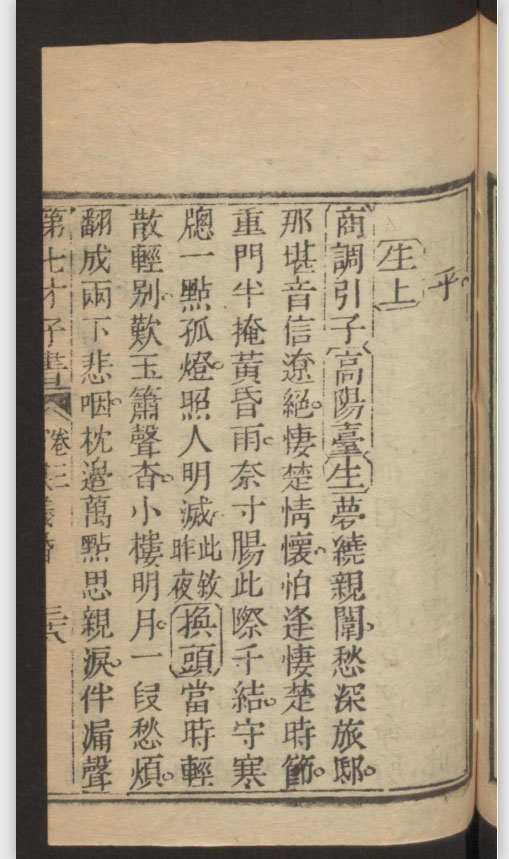 乎。
生上
商調引子高陽臺生夢繞親闈。愁深旅邸。
那堪音信遼絕。悽楚情懷。怕逢悽楚時節。
重門半掩黃昏雨。奈寸腸此際千結。守寒
牕一點孤燈。照人明滅。此敘昨夜換頭當時輕
散輕別。歎玉簫聲杳。小樓明月。一段愁煩。
翻成兩下悲咽。枕邊萬點思親淚。伴漏聲
第七才子書 卷三